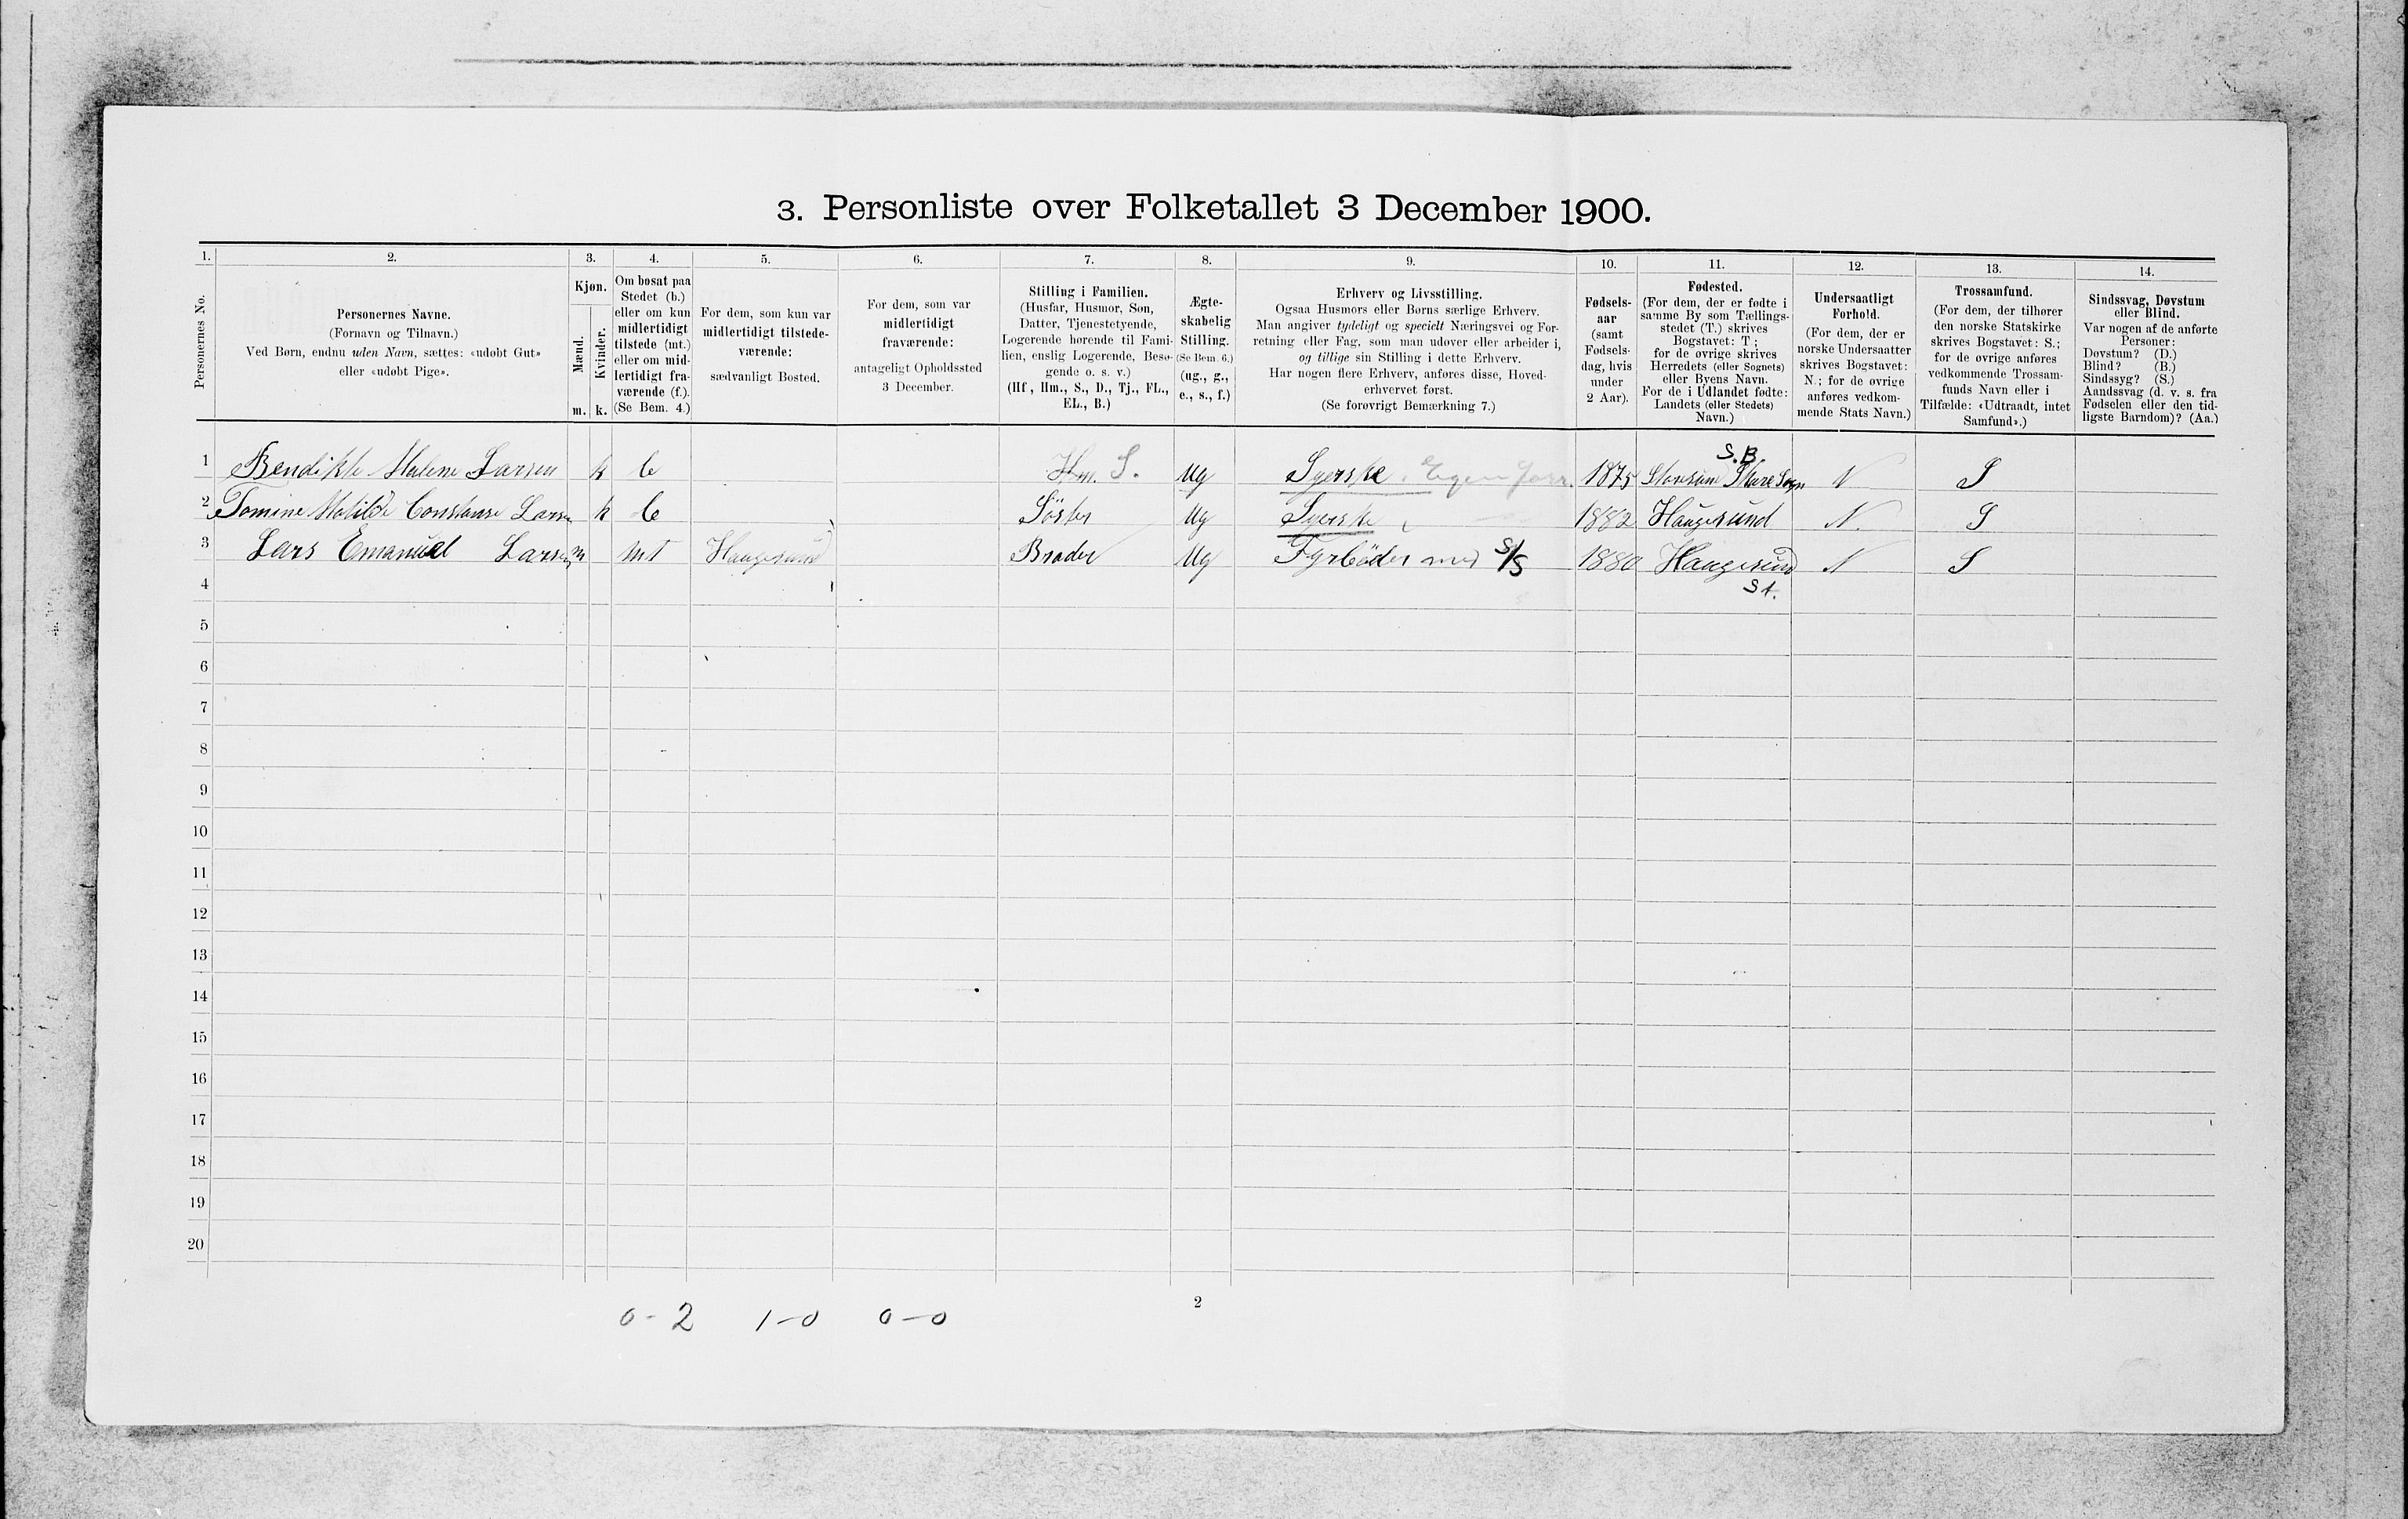 3. Personliste over Folketallet 3 December 1900.
1. 2. 3. 4. 5. 6. 7. 8. 9. 10. 11. 12. 13. 14.
Personernes No.
Personernes Navne.
(Fornavn og Tilnavn.)
Ved Børn, endnu uden Navn, sættes: «udøbt Gut»
eller «udøbt Pige».
Kjøn.
Mænd.
Kvinder.
m. k.
Om bosat paa
Stedet (b.)
eller om kun
midlertidigt
tilstede (mt.)
eller om mid-
lertidigt fra-
værende (f.).
(Se Bem. 4.)
For dem, som kun var
midlertidigt tilstede-
værende:
sædvanligt Bosted.
For dem, som var
midlertidigt
fraværende:
antageligt Opholdssted
3 December.
Stilling i Familien.
(Husfar, Husmor, Søn,
Datter, Tjenestetyende,
Logerende hørende til Fami-
lien, enslig Logerende, Besø-
gende o. s. v.)
(Hf, Hm., S., D., Tj., FL.,
EL., B.)
Ægte-
skabelig
Stilling.
(Se Bem. 6.)
(ug., g.,
e., s., f.)
Erhverv og Livsstilling.
Ogsaa Husmors eller Børns særlige Erhverv.
Man angiver tydeligt og specielt Næringsvei og For-
retning eller Fag, som man udøver eller arbeider i,
og tillige sin Stilling i dette Erhverv.
Har nogen flere Erhverv, anføres disse, Hoved-
erhvervet først.
(Se forøvrigt Bemærkning 7.)
Fødsels-
aar
(samt
Fødsels-
dag, hvis
under
2 Aar).
Fødested.
(For dem, der er fødte i
samme By som Tællings-
stedet (T.) skrives
Bogstavet: T;
for de øvrige skrives
Herredets (eller Sognets)
eller Byens Navn.
For de i Udlandet fødte:
Landets (eller Stedets)
Navn.)
Undersaatligt
Forhold.
(For dem, der er
norske Undersaatter
skrives Bogstavet:
N.; for de øvrige
anføres vedkom-
mende Stats Navn.)
Trossamfund.
(For dem, der tilhører
den norske Statskirke
skrives Bogstavet: S.;
for de øvrige anføres
vedkommende Trossam-
funds Navn eller i
Tilfælde: «Udtraadt, intet
Samfund».)
Sindssvag, Døvstum
eller Blind.
Var nogen af de anførte
Personer:
Døvstum? (D.)
Blind? (B.)
Sindssyg? (S.)
Aandssvag (d. v. s. fra
Fødselen eller den tid-
ligste Barndom)? (Aa.)
S.B.
1 Bendikte Malene Larsen k b Hm. S. Ug Syerske. Egen 1875 Skare Sogn N S
2 Tomine Matilde Constanse Larsen k b Söster Ug Syerske 1882 Haugesund N. S
3 Lars Emanuel Larsen m mt Haugesund Broder Ug Fyrböder med S/S 1880 Haugesund N S
St.
4
5
6
7
8
9
10
11
12
13
14
15
16
17
18
19
20
2
0-2 1-0 0-0